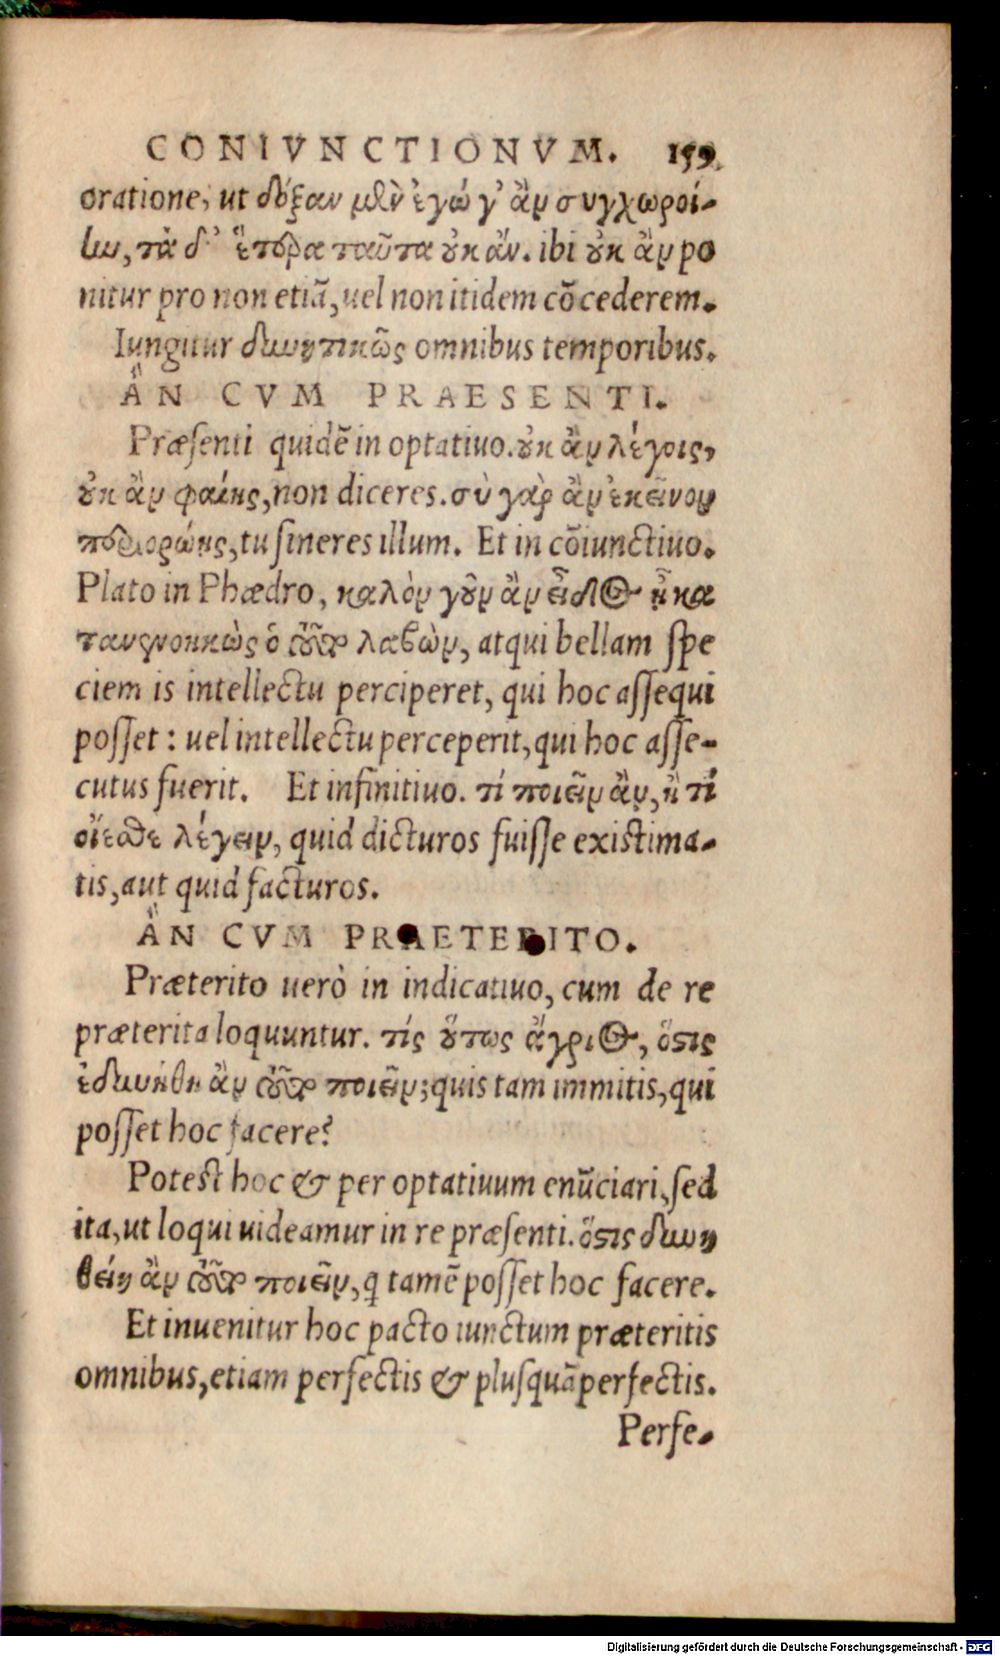 CONIVNCTIONVM. 159
oratione, ut δόξαν μὲν ἐγώ γ' ἂν συγχωροί-
ην, τὰ δ' ἕτερα ταῦτα ȣ̓κ ἄν. ibi ȣ̓κ ἂν po
nitur pro non etiã, uel non itidem cõcederem.
Iungitur δυνητικῶς omnibus temporibus.
ἂN CVM PRAESENTI.
Præſenti quidẽ in optatiuo. ȣ̓κ ἂν λέγοις,
ȣ̓κ ἂν φαίης, non diceres. σὺ γὰρ ἂν ἐκεῖνον
περιορῴης, tu ſineres illum. Et in cõiunctiuo.
Plato in Phædro, καλὸν γȣ͂ν ἂν εἶδος ᾖ κα
τανενοηκὼς ὁ τȣ͂το λαβὼν, atqui bellam ſpe
ciem is intellectu perciperet, qui hoc aſſequi
poſſet: uel intellectu perceperit, qui hoc aſſe-
cutus fuerit. Et infinitiuo. τί ποιεῖν ἂν, ἢ τί
οἴεσθε λέγειν, quid dicturos fuiſſe existima-
tis, aut quid facturos.
ἂN CVM PRAETERITO.
Præterito uerò in indicatiuo, cum de re
præterita loquuntur. τίς ȣ̔́τως ἄγριος, ὅστις
ἐδυνήθη ἂν τȣ͂το ποιεῖν; quis tam immitis, qui
poſſet hoc facere?
Potest hoc & per optatiuum enũciari, ſed
ita, ut loqui uideamur in re præſenti. ὅστις δυνη
θείη ἂν τȣ͂το ποιεῖν, q tamẽ poſſet hoc facere.
Et inuenitur hoc pacto iunctum præteritis
omnibus, etiam perfectis & pluſquãperfectis.
Perfe-
Digitalisierung gefördert durch die Deutsche Forschungsgemeinschaft - DFG